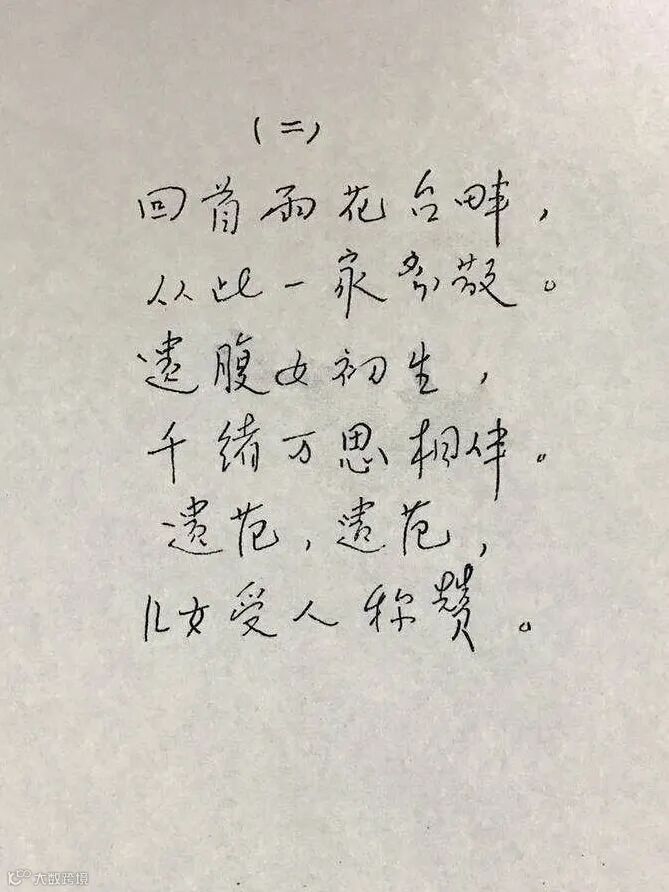 （二）
回首雨花台畔，
从此一家分散。
遗腹女初生，
千绪万思相伴。
遗范，遗范，
儿女受人称赞。
大数跨境